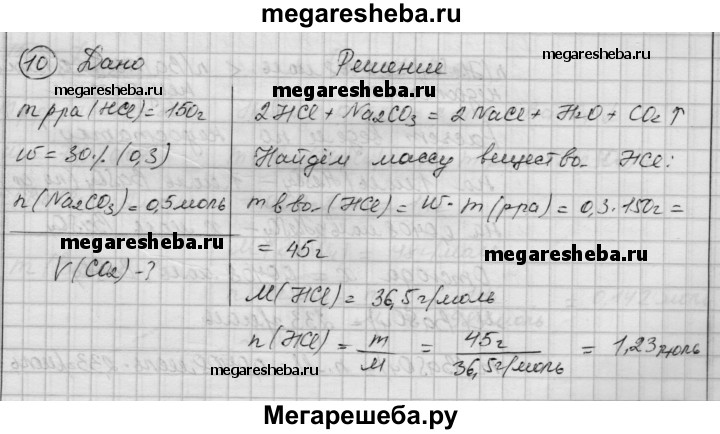 megaresheba.ru
10 Дано Решение
megaresheba.ru
megaresheba.ru
megaresheba.ru
m р-ра (HCl) = 150г
2HCl + Na2CO3 = 2NaCl + H2O + CO2 ↑
w = 30% (0,3)
Найдём массу вещества HCl:
n(Na2CO3) = 0,5 моль
m в-ва (HCl) = w · m(р-ра) = 0,3 · 150г =
megaresheba.ru
megaresheba.ru
= 45г
V(CO2) - ?
M(HCl) = 36,5 г/моль
n(HCl) = m/M = 45г/36,5г/моль = 1,23 моль
megaresheba.ru
megaresheba.ru
Мегарешеба.ру